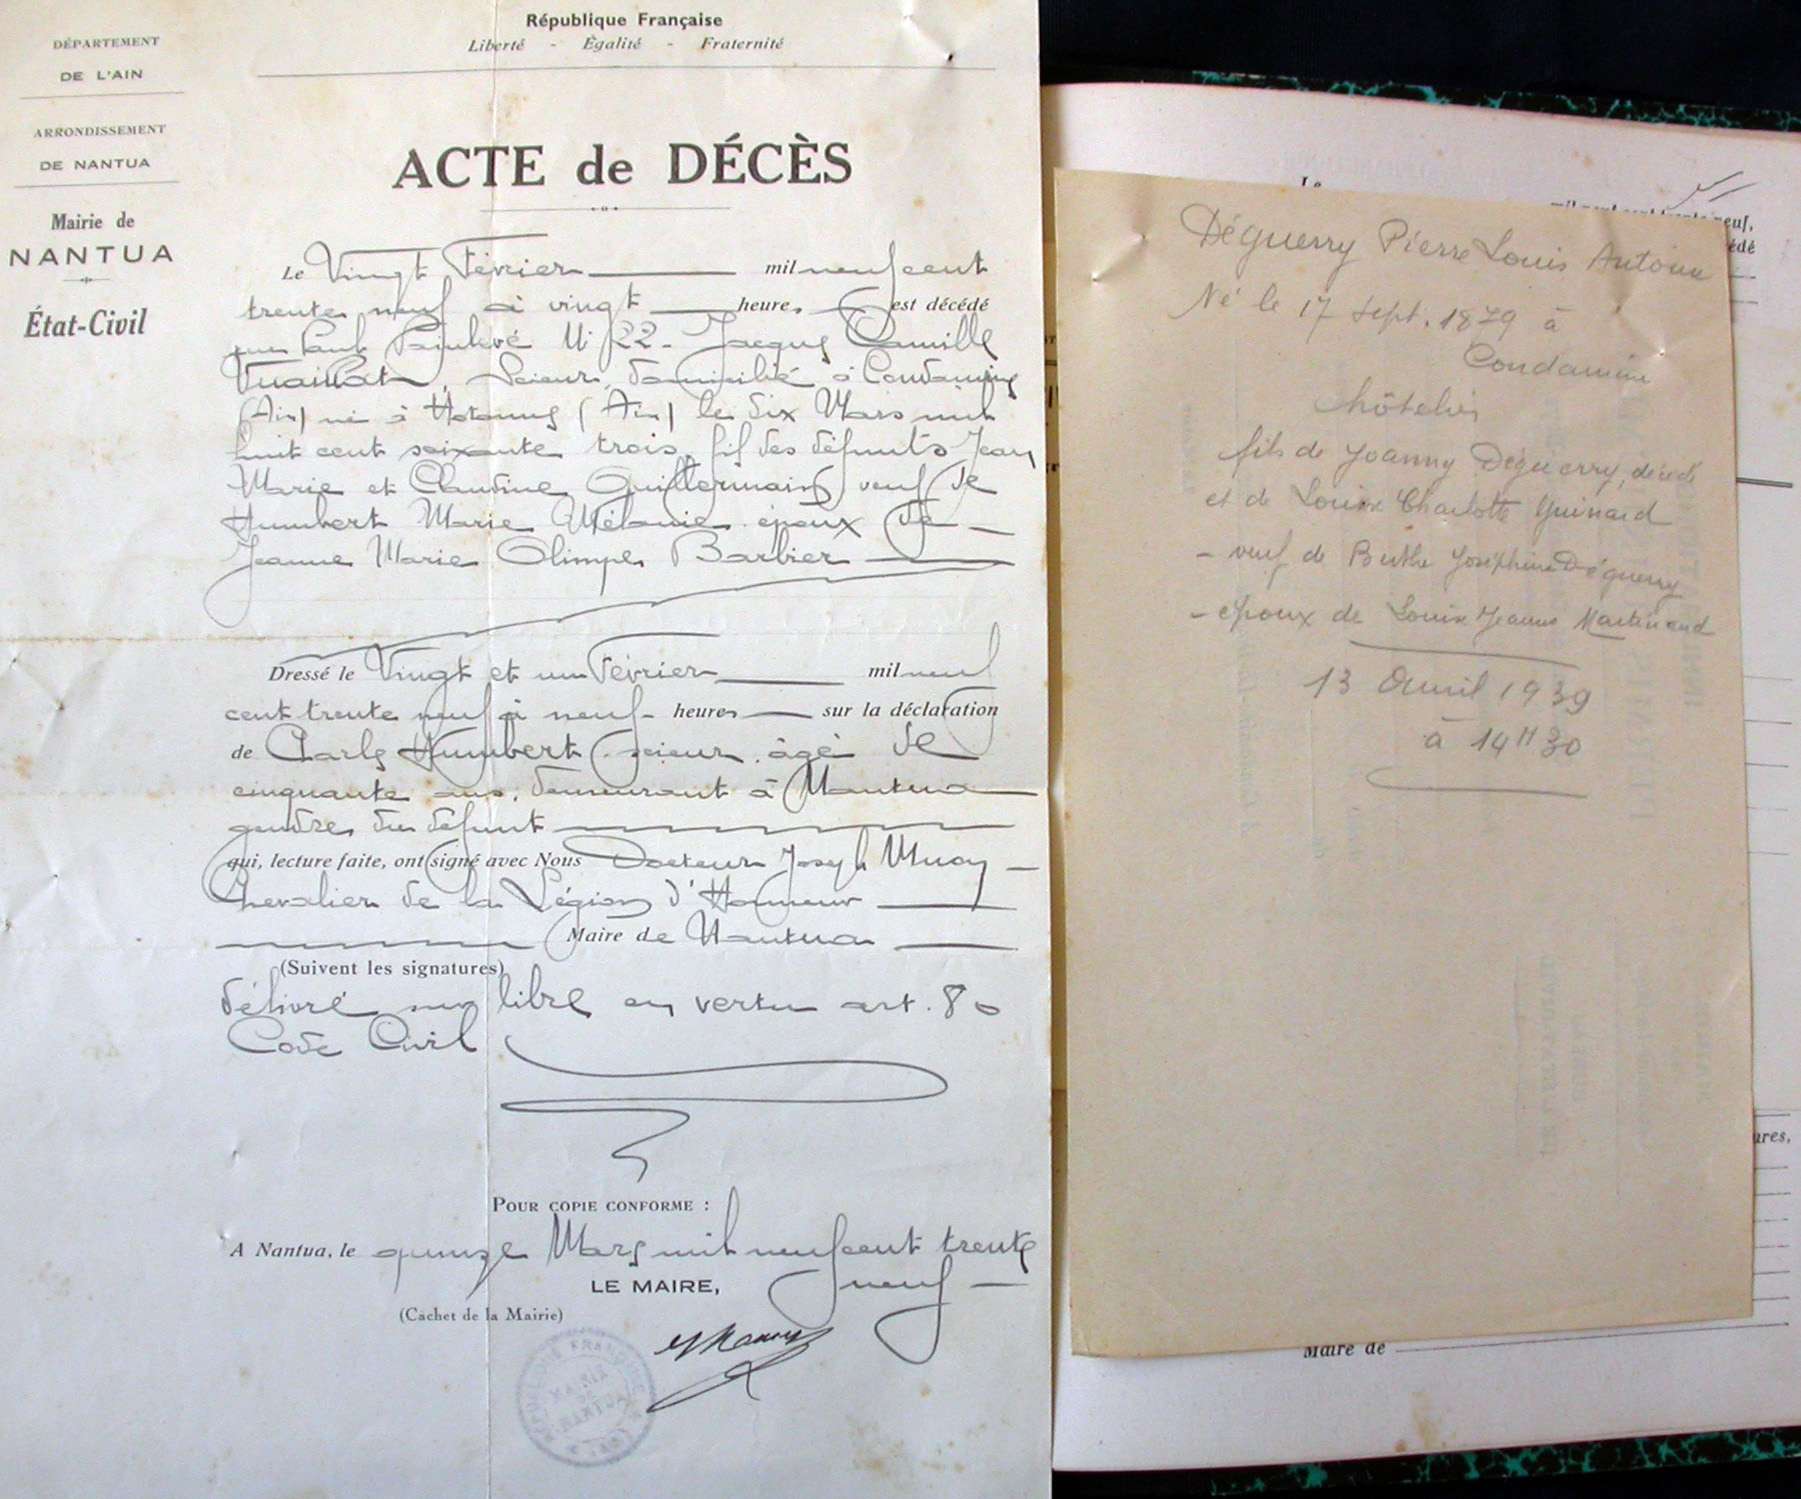 DÉPARTEMENT
DE L'AIN
ARRONDISSEMENT
DE NANTUA
Mairie de
NANTUA
État-Civil
République Française
Liberté - Égalité - Fraternité
ACTE de DÉCÈS
Le Vingt Février mil neuf cent
trente neuf à vingt heures est décédé
rue Paul Painlevé N° 22 - Jacques Camille
Vuaillat, Scieur, domicilié à Condamine
(Ain) né à Hotonnes (Ain) le six Mars mil
huit cent soixante trois, fils des défunts Jean
Marie et Claudine Guillermain, veuf de
Humbert Marie Mélanie époux de
Jeanne Marie Olimpe Barbier
Dressé le Vingt et un Février mil neuf
cent trente neuf à neuf heures sur la déclaration
de Charles Humbert, scieur, âgé de
cinquante ans, demeurant à Nantua
gendre du défunt
qui, lecture faite, ont signé avec Nous Docteur Joseph
Chevalier de la Légion d'Honneur
Maire de Nantua
(Suivent les signatures)
délivré sur libre en vertu art. 80
Code Civil
POUR COPIE CONFORME :
A Nantua, le quinze Mars mil neuf cent trente
neuf
LE MAIRE,
(Cachet de la Mairie)
Le
mil neuf cent trente neuf,
édé
Déguerry Pierre Louis Antoine
Né le 17 Sept. 1879 à
Condamine
hôtelier
fils de Joanny Déguerry, décédé
et de Louise Charlotte Guinard
- veuf de Berthe Joséphine Déguerry
- époux de Louise Jeanne Martinand
13 Avril 1939
à 14 H 30
ures,
Maire de